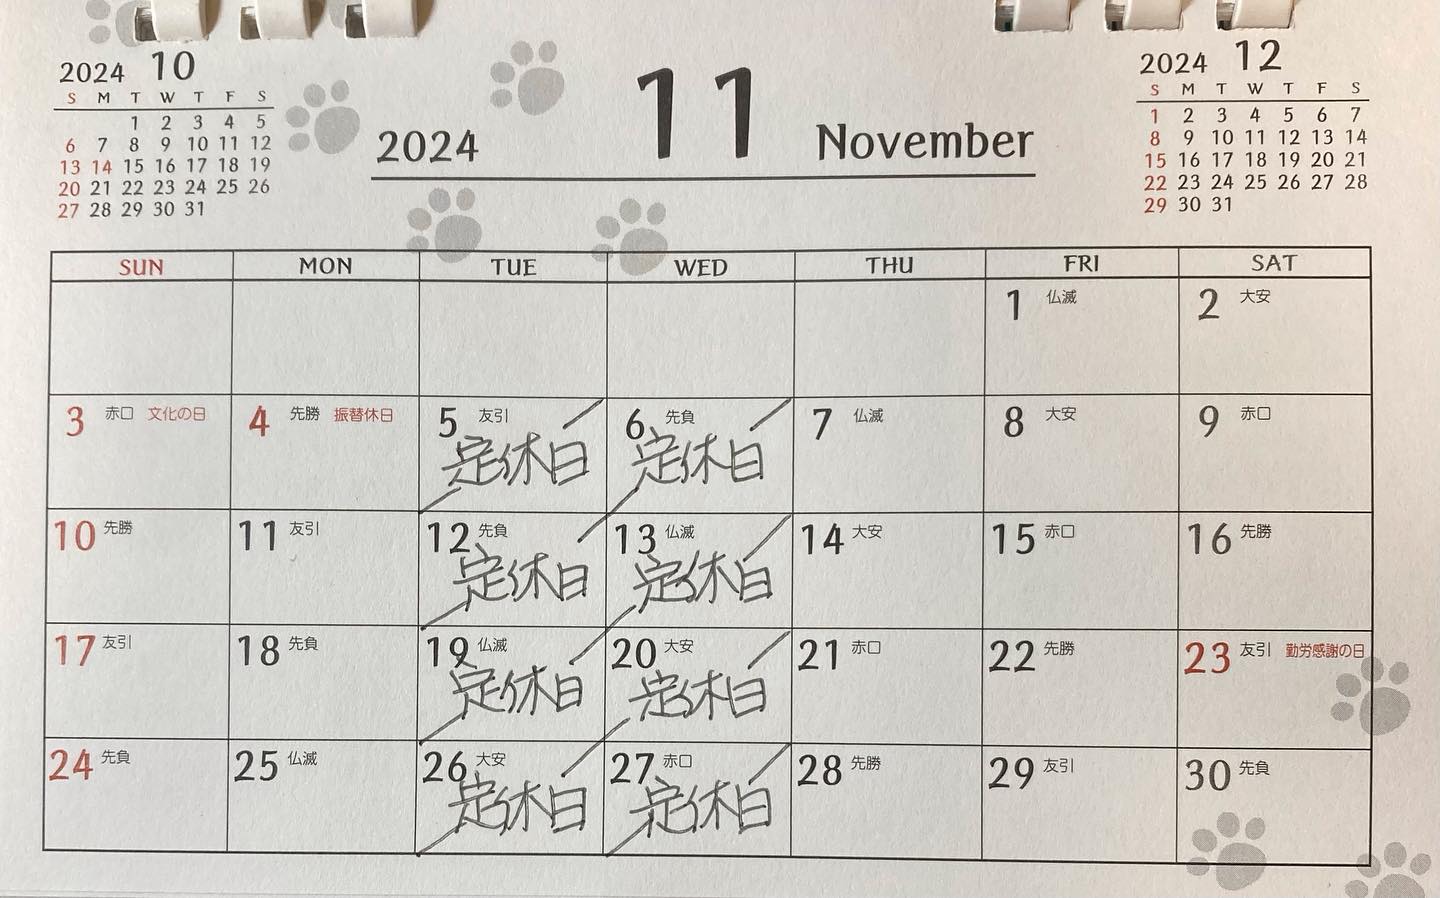 2024 10
S M T W T F S
1 2 3 4 5
6 7 8 9 10 11 12
13 14 15 16 17 18 19
20 21 22 23 24 25 26
27 28 29 30 31
2024 11 November
2024 12
S M T W T F S
1 2 3 4 5 6 7
8 9 10 11 12 13 14
15 16 17 18 19 20 21
22 23 24 25 26 27 28
29 30 31
SUN MON TUE WED THU FRI SAT
1 仏滅 2 大安
3 赤口 文化の日 4 先勝 振替休日 5 友引 6 先負 7 仏滅 8 大安 9 赤口
定休日 定休日
10 先勝 11 友引 12 先負 13 仏滅 14 大安 15 赤口 16 先勝
定休日 定休日
17 友引 18 先負 19 仏滅 20 大安 21 赤口 22 先勝 23 友引 勤労感謝の日
定休日 定休日
24 先負 25 仏滅 26 大安 27 赤口 28 先勝 29 友引 30 先負
定休日 定休日